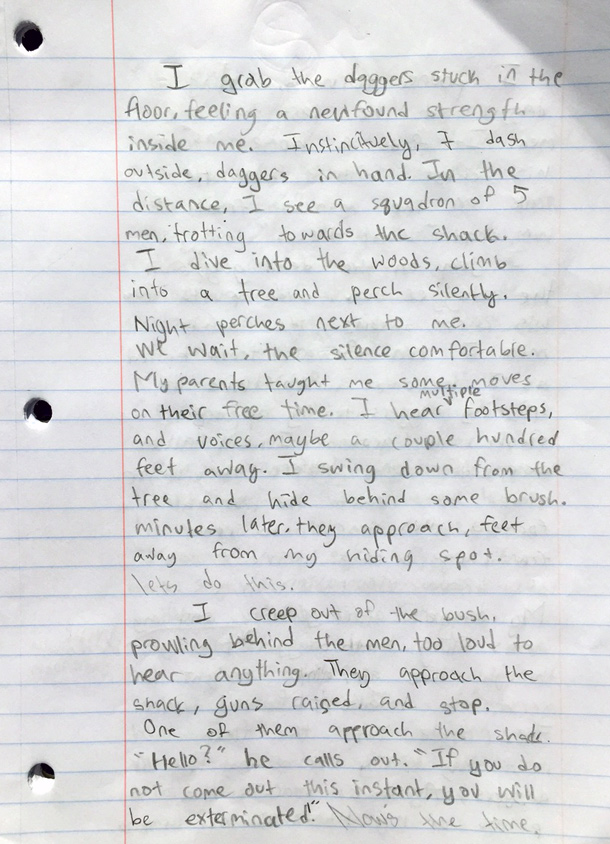 I grab the daggers stuck in the
floor, feeling a newfound strength
inside me. Instincitvely, I dash
outside, daggers in hand. In the
distance, I see a squadron of 5
men, trotting towards the shack.
I dive into the woods, climb
into a tree and perch silently.
Night perches next to me.
We wait, the silence comfortable.
My parents taught me some moves
on their free time. I hear multiple footsteps,
and voices, maybe a couple hundred
feet away. I swing down from the
tree and hide behind some brush.
minutes later, they approach, feet
away from my hiding spot.
lets do this.
I creep out of the bush,
prowling behind the men, too loud to
hear anything. They approach the
shack, guns raised, and stop.
One of them approach the shack.
"Hello?" he calls out. "If you do
not come out this instant, you will
be exterminated!" Now's the time.